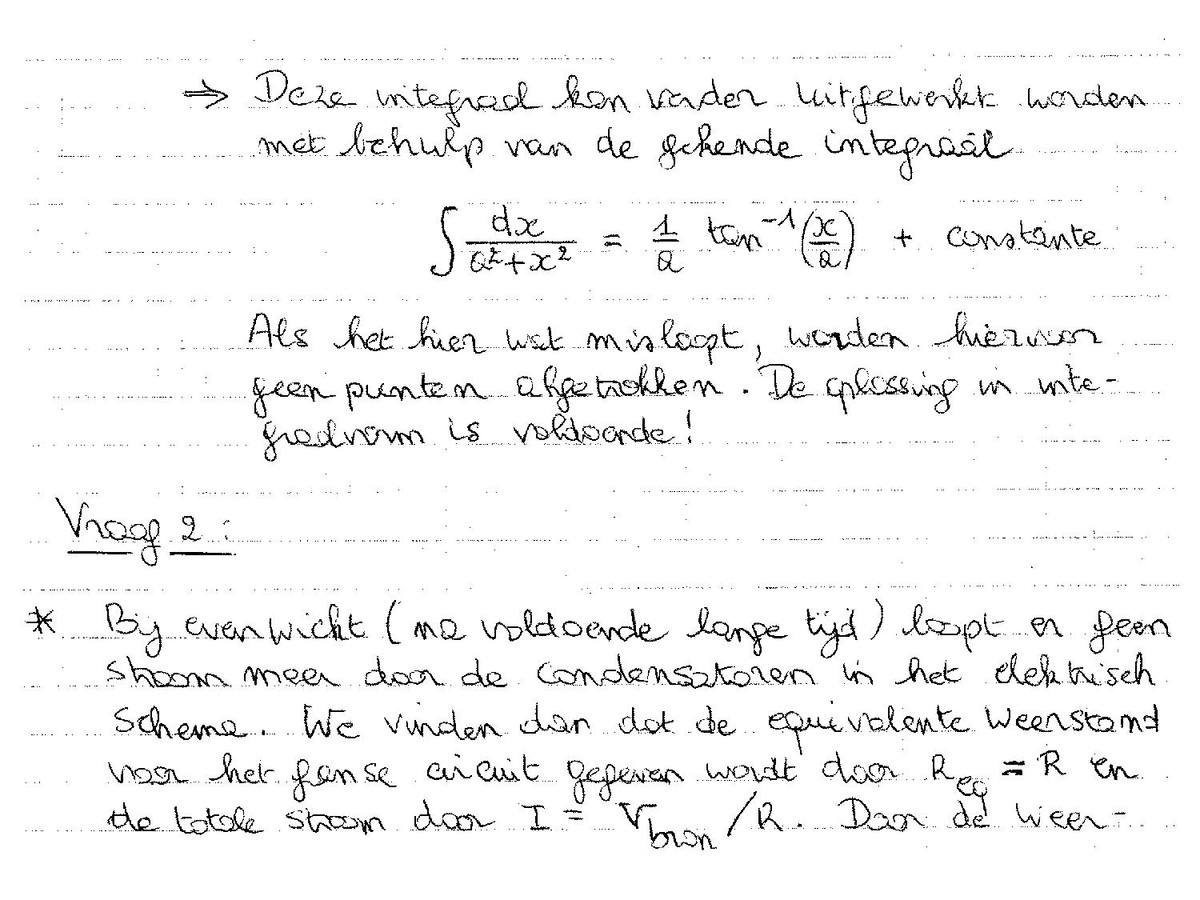 ⇒ Deze integraal kan verder uitgewerkt worden
met behulp van de gekende integraal
∫ dx/(a²+x²) = 1/a tan⁻¹(x/a) + constante
Als het hier wat misloopt, worden hiervoor
geen punten afgetrokken. De oplossing in inte-
graalvorm is voldoende!
Vraag 2 :
* Bij evenwicht (na voldoende lange tijd) loopt er geen
stroom meer door de condensatoren in het elektrisch
schema. We vinden dan dat de equivalente weerstand
voor het ganse circuit gegeven wordt door R_eq = R en
de totale stroom door I = V_bron/R. Door de weer-